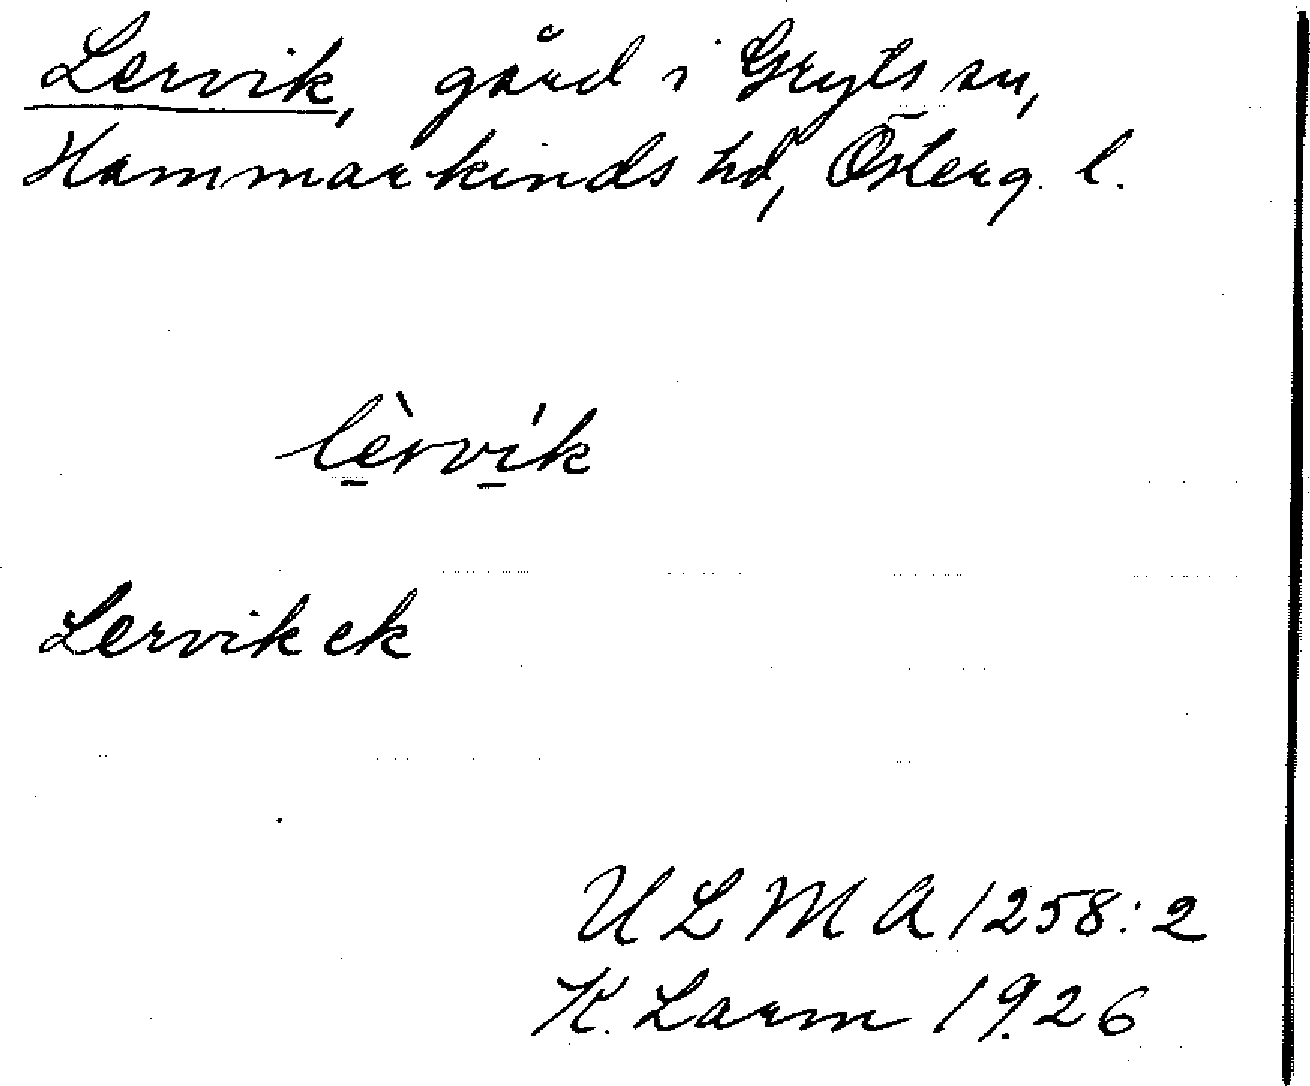 Lervik, gård i Gryts sn,
Hammarkinds hd, Österg. l.
lè̠rví̠k
Lervik ek
ULMA 1258:2
K. Larm 1926